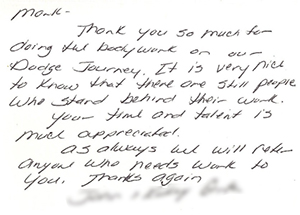 Monk-
Thank you so much for
doing the bodywork on our
Dodge Journey. It is very nice
to know that there are still people
who stand behind their work.
Your time and talent is
much appreciated.
As always we will refer
anyone who needs work to
you. Thanks again